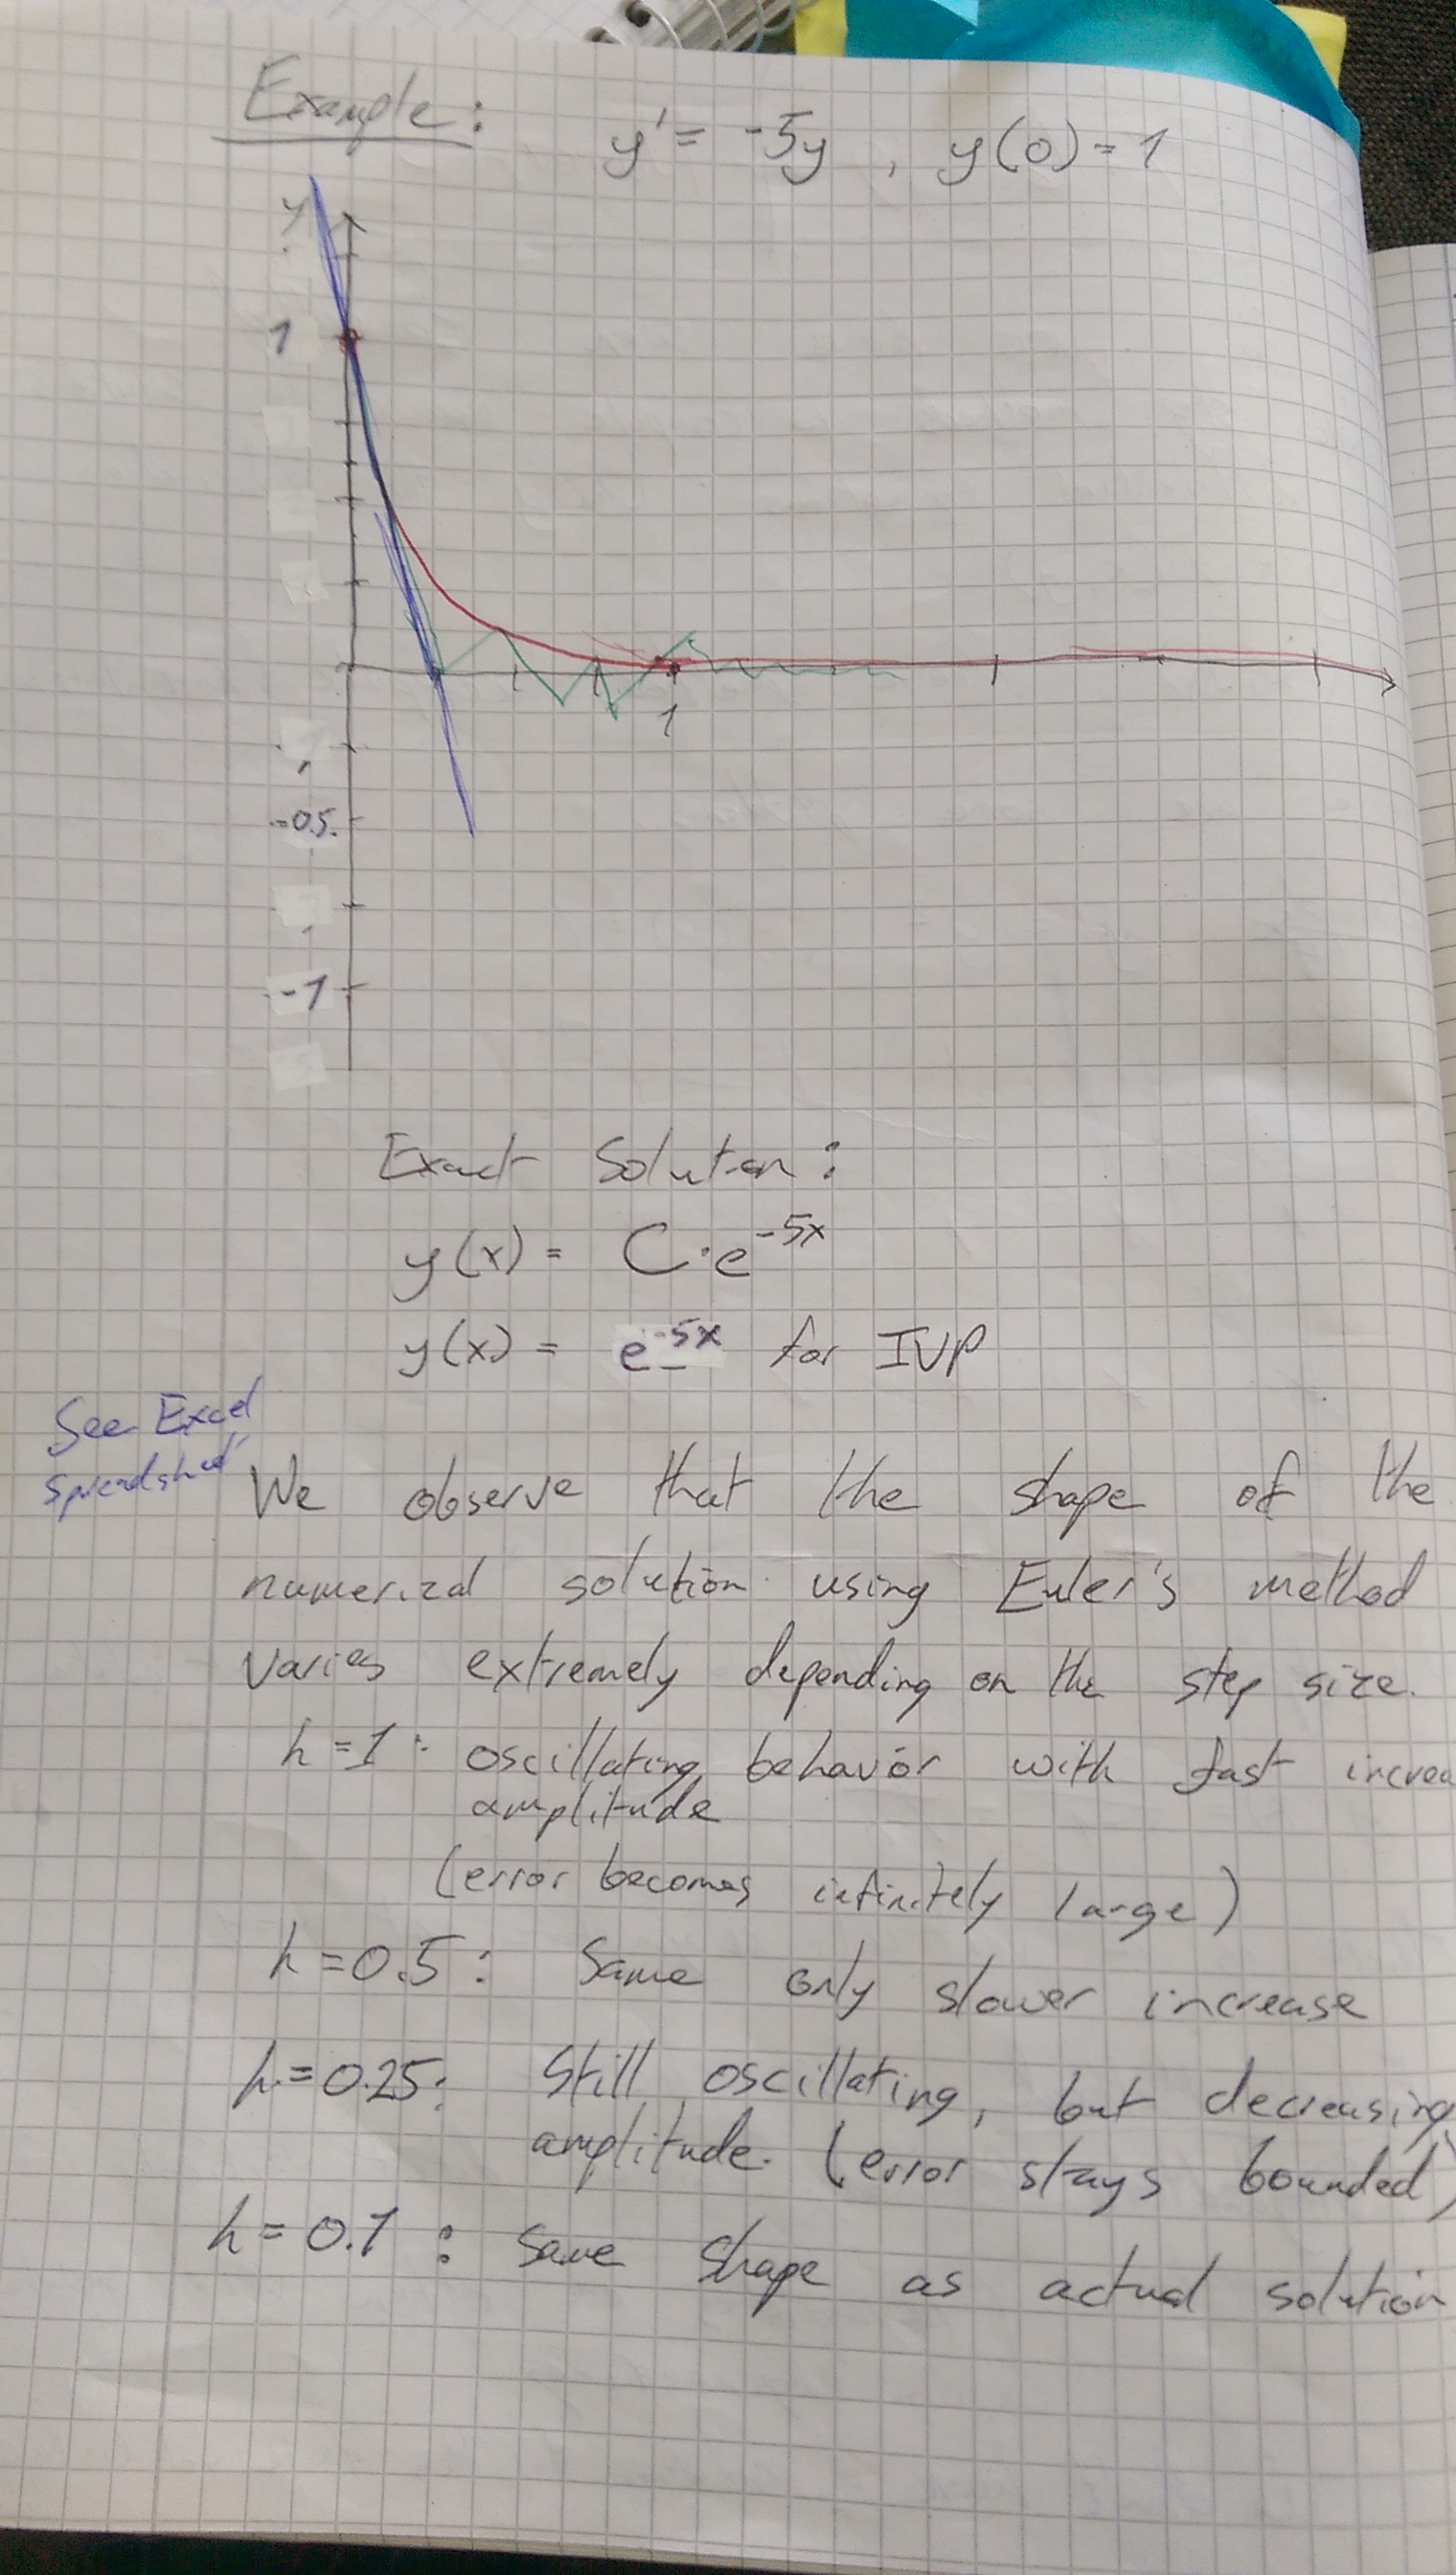 Example: y' = -5y , y(0) = 1
y
1
1
-0.5
-1
Exact Solution:
y(x) = C·e^-5x
y(x) = e^-5x for IVP
See Excel
We observe that the shape of the
numerical solution using Euler's method
varies extremely depending on the step size.
h=1: oscillating behavior with fast increa
amplitude
(error becomes infinitely large)
h=0.5: Same only slower increase
h=0.25: Still oscillating, but decreasing
amplitude. (error stays bounded)
h=0.1: Same shape as actual solution